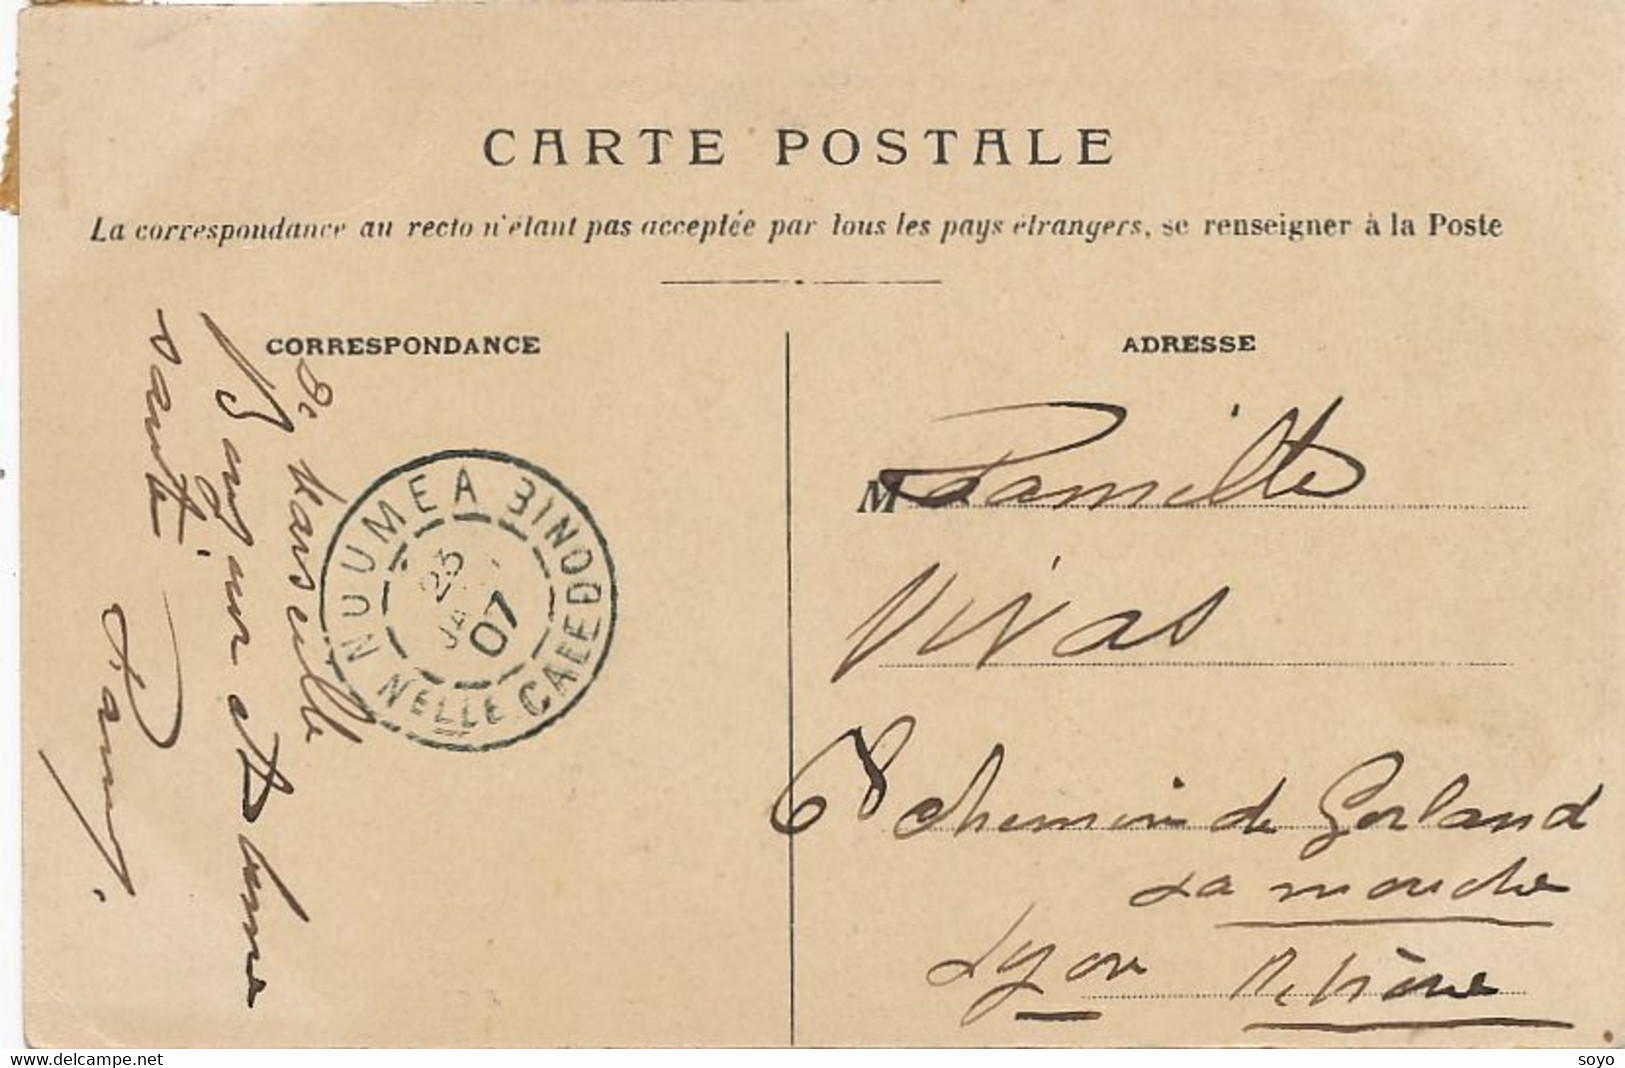 CARTE POSTALE
La correspondance au recto n'étant pas acceptée par tous les pays étrangers, se renseigner à la Poste
CORRESPONDANCE
De Marseille
Bonjour et bonne
santé
ADRESSE
M Famille
Vivas
68 Chemin de Gerland
La mouche
Lyon Rhône
NOUMEA
23 JA 07
NELLE CALEDONIE
www.delcampe.net
soyo